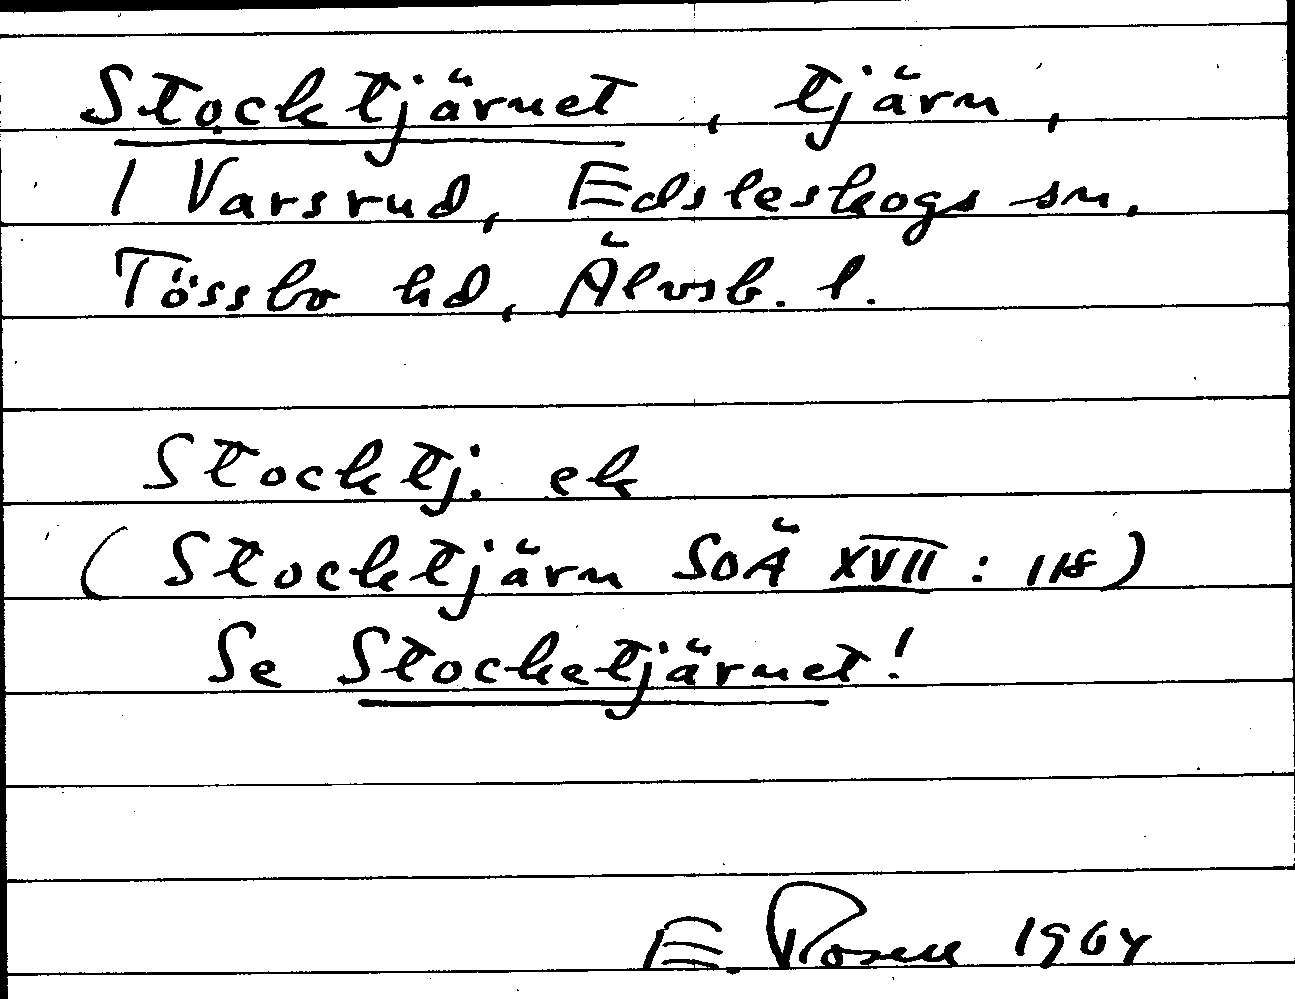 Stocktjärnet, tjärn,
I Varsrud, Edsleskogs sn,
Tössbo hd, Älvsb. l.
Stocktj. ek
(Stocktjärn SOÄ XVII: 118)
Se Stocketjärnet!
E. Rosell 1964